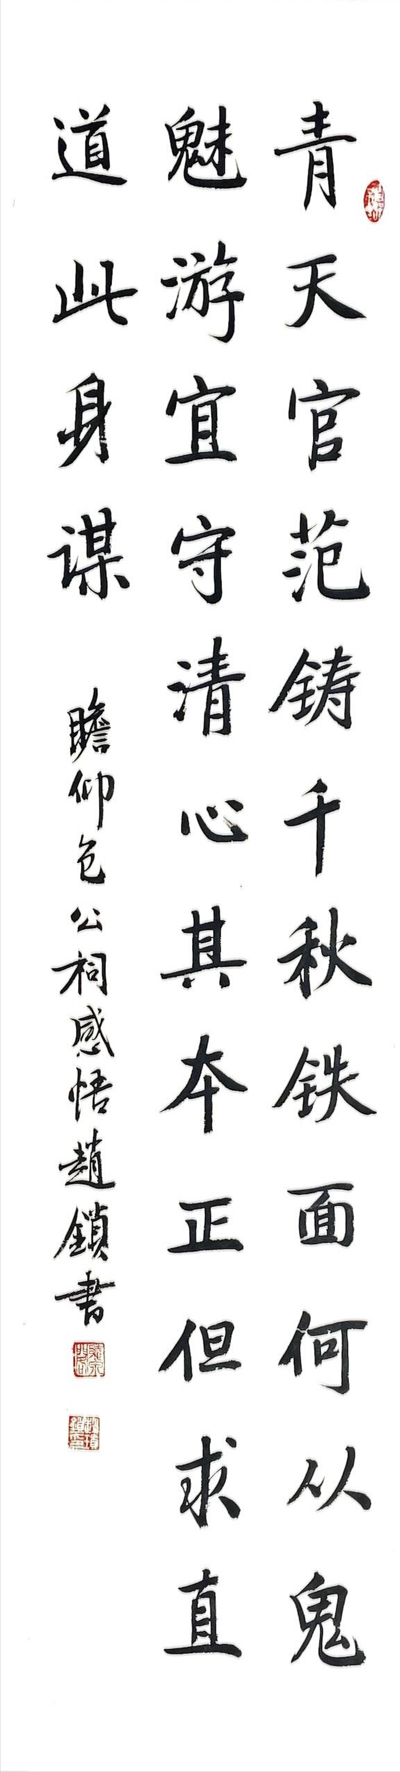 青天官范铸千秋铁面何从鬼
魅游宜守清心其本正但求直
道此身谋
瞻仰包公祠感悟趙鎖书